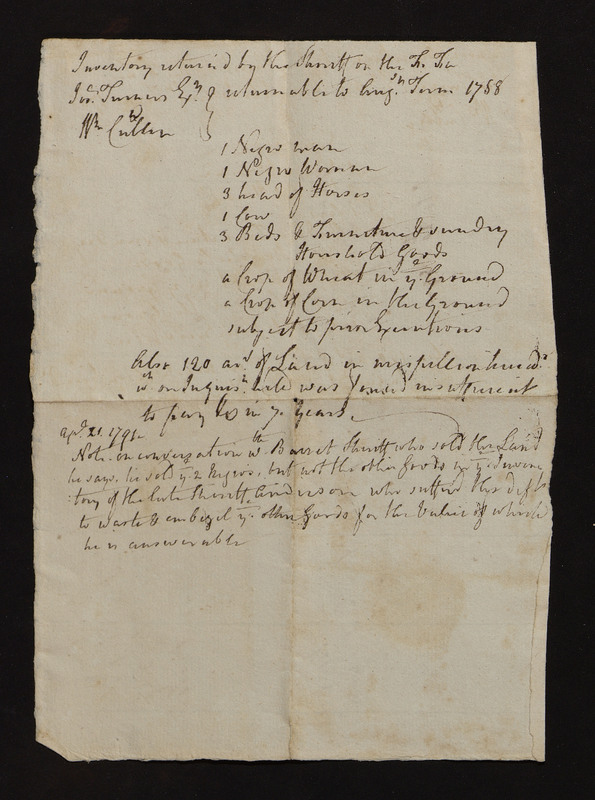 Inventory return'd by the Sheriff on the Fi. Fa
Jos. Turners Exr. } returnable to Augt. Term 1788
Wm. Cullen }
1 Negro man
1 Negro Woman
3 head of Horses
1 Cow
3 Beds & Furniture & sundry
Houshold Goods
a Crop of Wheat in ye. Ground
a Crop of Corn in the Ground
subject to prior Executions
Also 120 acrs. of Land in mispillion hundd.
wh. on Inquisn. held was found insufficient
to pay &c in 7 Years
Apl. 21. 1791
Note. on conversation wth. Barret Sheriff who sold the Land
he says, he sold ye 2 Negros, but not the other Goods in ye Inven
tory of the late Sheriff who suffer'd the Deft.
to waste & embezel ye. other Goods for the Value of which
he is answerable